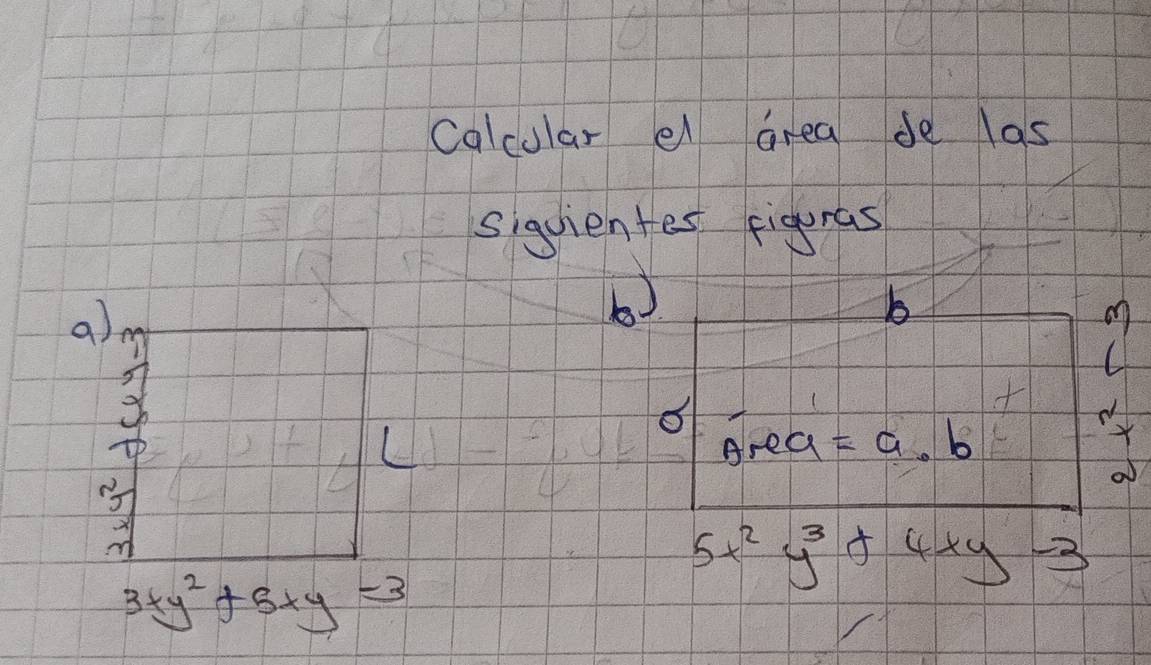 Calcular el área de las
siguientes figuras
a)
3xy² + 5xy - 3
L
3xy² + 5xy - 3
b)
b
a
Área = a . b
5x² y³ + 4xy - 3